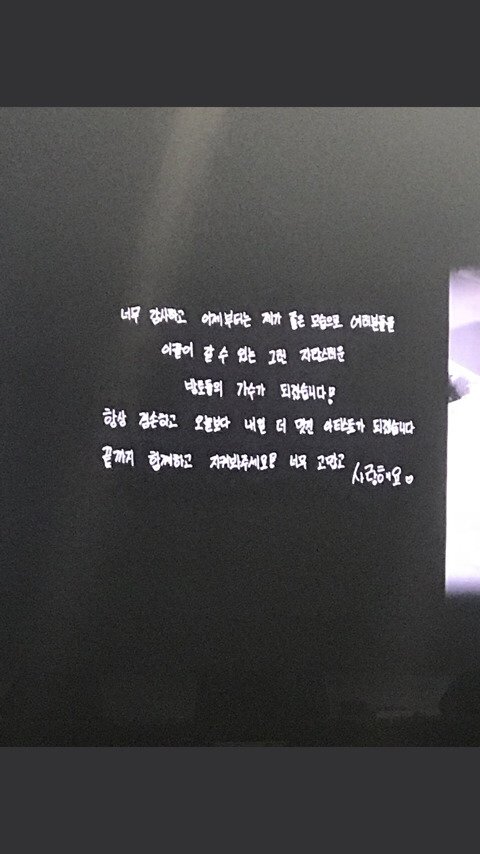 너무 감사하고 이제부터는 제가 좋은 모습으로 여러분들을
이끌어 갈 수 있는 그런 자랑스러운
방토들의 가수가 되겠습니다!
항상 겸손하고 오늘보다 내일 더 멋진 아티스트가 되겠습니다
끝까지 함께하고 지켜봐주세요! 너무 고맙고
사랑해요♡